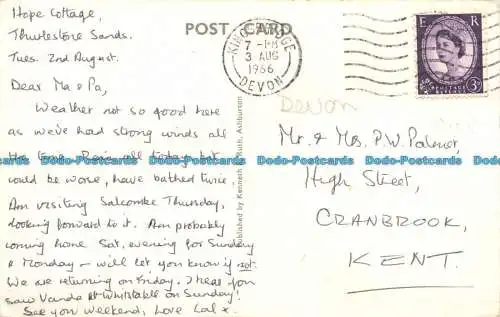 Hope Cottage,
Thurlestone Sands.
Tues. 2nd August.
Dear Ma & Pa,
Weather not so good here
as we've had strong winds all
the time. Rain all today but
could be worse, have bathed twice.
Am visiting Salcombe Thursday,
looking forward to it. Am probably
coming home Sat, evening for Sunday
& Monday – will let you know if not.
We are returning on Friday. I hear you
saw Vanda at Whitstable on Sunday!
See you weekend, Love Cal x.
POST CARD
Published by Kenneth Ashburton
KINGSBRIDGE
7-PM
3 AUG
1966
DEVON
E R
POSTAGE
3D
Devon
Mr. & Mrs. P.W. Palmer,
High Street,
CRANBROOK,
KENT.
Dodo-Postcards Dodo-Postcards Dodo-Postcards Dodo-Postcards Dodo-Postcards